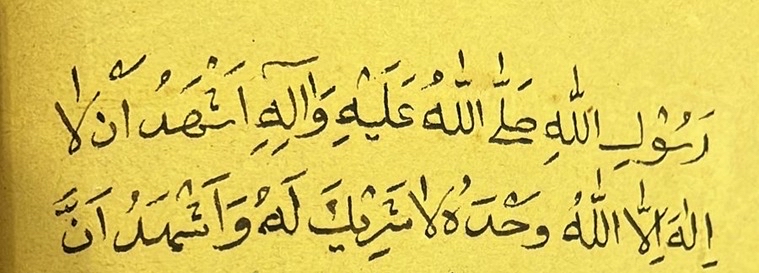 رَسُوْلِ اللّٰهِ صَلَّى اللّٰهُ عَلَيْهِ وَاٰلِهٖ اَشْهَدُ اَنْ لَا
اِلٰهَ اِلَّا اللّٰهُ وَحْدَهٗ لَا شَرِيْكَ لَهٗ وَاَشْهَدُ اَنَّ